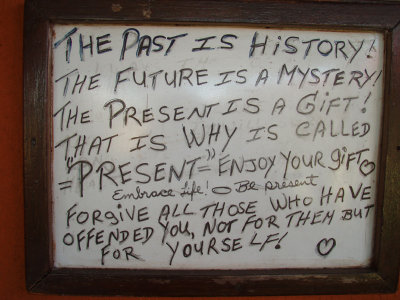 THE PAST IS HISTORY!
THE FUTURE IS A MYSTERY!
THE PRESENT IS A GIFT!
THAT IS WHY IS CALLED
="PRESENT"= ENJOY YOUR GIFT
Embrace Life! Be present
FORGIVE ALL THOSE WHO HAVE
OFFENDED YOU, NOT FOR THEM BUT
FOR YOURSELF!